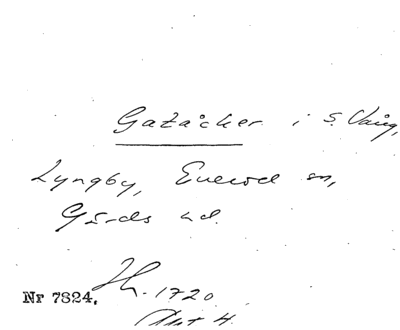 Gatåcker i S. Vång,
Lyngby, Everöd sn,
Gärds hd.
Nr 7824. Jh. 1720.
Akt 4.